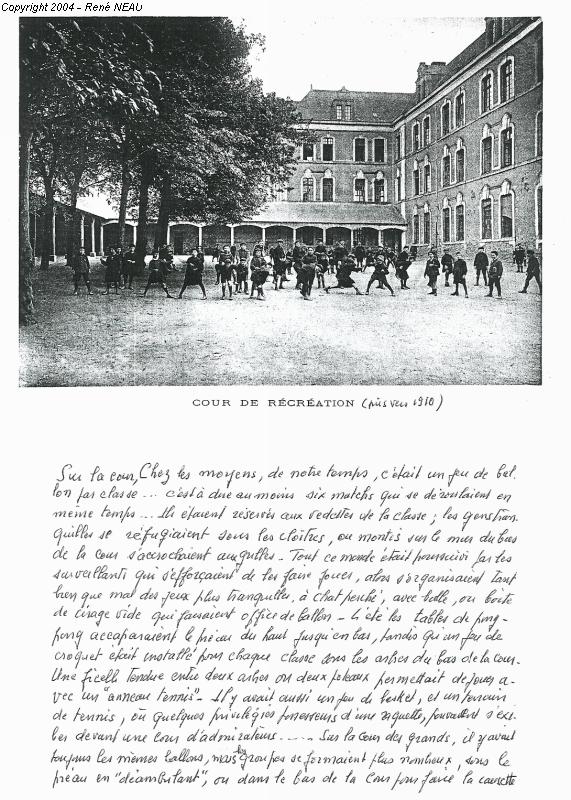 Copyright 2004 - René NEAU
COUR DE RÉCRÉATION (pris vers 1910)
Sur la cour, Chez les moyens, de notre temps, c'était un jeu de bal-
lon par classe... c'est à dire au moins six matchs qui se déroulaient en
même temps... Ils étaient réservés aux vedettes de la classe ; les gens tran-
quilles se réfugiaient sous les cloîtres, ou montés sur le mur du bas
de la cour s'accrochaient aux grilles - Tout ce monde était poursuivi par les
surveillants qui s'efforçaient de les faire jouer, alors s'organisaient tant
bien que mal des jeux plus tranquilles, à chat perché, avec balle, ou boîte
de cirage vide qui faisaient office de ballon - L'été les tables de ping-
pong accaparaient le préau du haut jusqu'en bas, tandis qu'un jeu de
croquet était installé pour chaque classe sous les arbres du bas de la cour.
Une ficelle tendue entre deux arbres ou deux poteaux permettait de jouer a-
vec un "anneau tennis" - Il y avait aussi un jeu de basket, et un terrain
de tennis, où quelques privilégiés possesseurs d'une raquette, pouvaient s'exi-
ber devant une cour d'admirateurs..... Sur la cour des grands, il y avait
toujours les mêmes ballons, mais les groupes se formaient plus nombreux, sous le
préau en "déambulant", ou dans le bas de la cour pour faire la causette